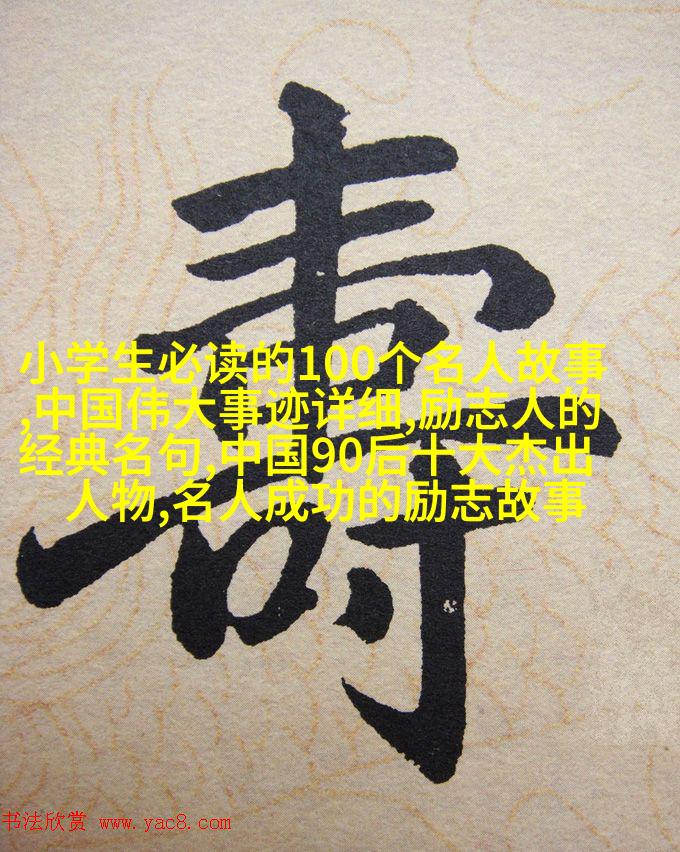 壽
小学生必读的100个名人故事
,中国伟大事迹详细,励志人的
经典名句,中国90后十大杰出
人物,名人成功的励志故事
书法欣赏 www.yac8.com